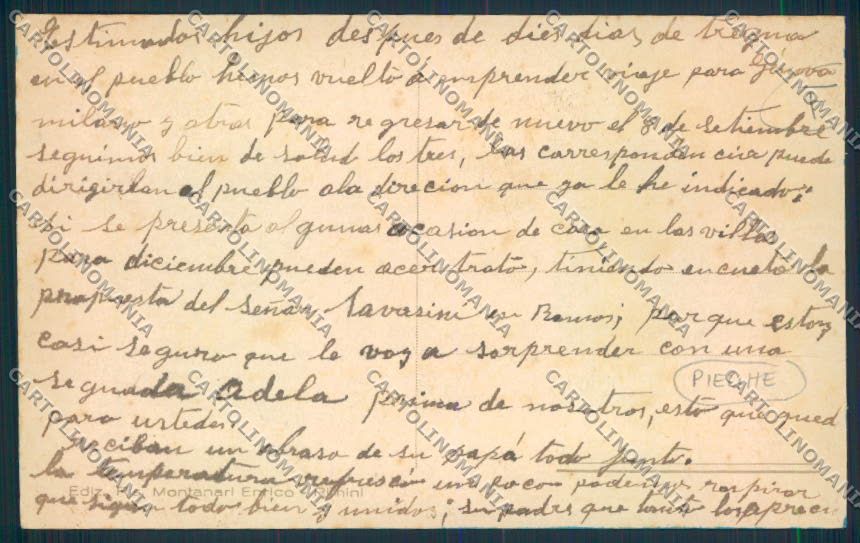 Estimados hijos despues de dies dias de tregua
en el pueblo hemos vuelto á emprender viaje para Génova
milano y otras para regresar de nuevo el 8 de setiembre
seguimos bien de salud los tres, las correspondencia puede
dirigirlan al pueblo ala direcion que ya le he indicado;
si se presenta algunas ocasion de casa en las villa
para diciembre pueden acer trato, tiniendo encueta la
propuesta del señor Savasini en Ramos; porque estoy
casi seguro que le voy a sorprender con una
segunda Adela prima de nosotros, esto que qued
para ustedes.
PIECHE
reciban un abraso de su papá todo junto.
la temperatura refrescó un poco podemos respirar
Ediz. Montanari Enrico Rimini
que sigan todo bien y unidos; su padre que tanto los aprecia
CARTOLINOMANIA